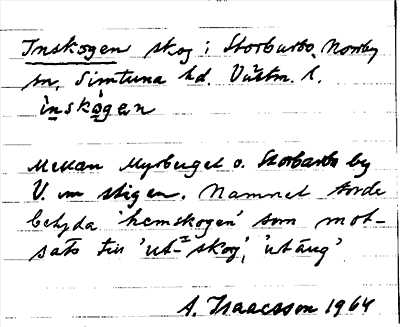 Inskogen skog i Storbarbo, Norrby
sn, Simtuna hd. Västm. l.
ìnskògen
Mellan Myrberget o. Storbarbo by
V. om stigen. Namnet torde
betyda 'hemskogen' som mot-
sats till 'ut-skog', 'utäng'
A. Isaacsson 1964